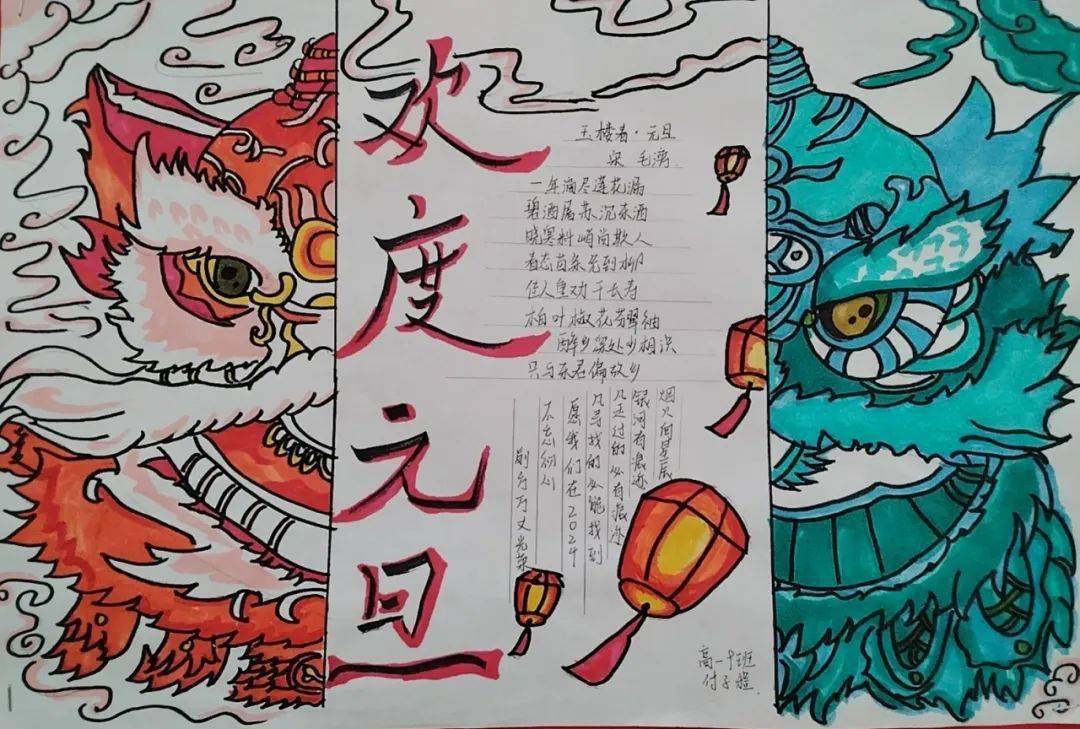 欢度元旦
玉楼春·元旦
宋 毛滂
一年滴尽莲花漏
碧酒屠苏沉冻酒
晓寒料峭尚欺人
春态苗条先到柳
佳人重劝千长寿
柏叶椒花芬翠袖
醉乡深处少相识
只与东君偏故乡
烟火向星辰
银河有
凡走过的必有痕迹
凡寻找的必能找到
愿我们在2024
不忘初心
前方万丈光
高一 班
付子